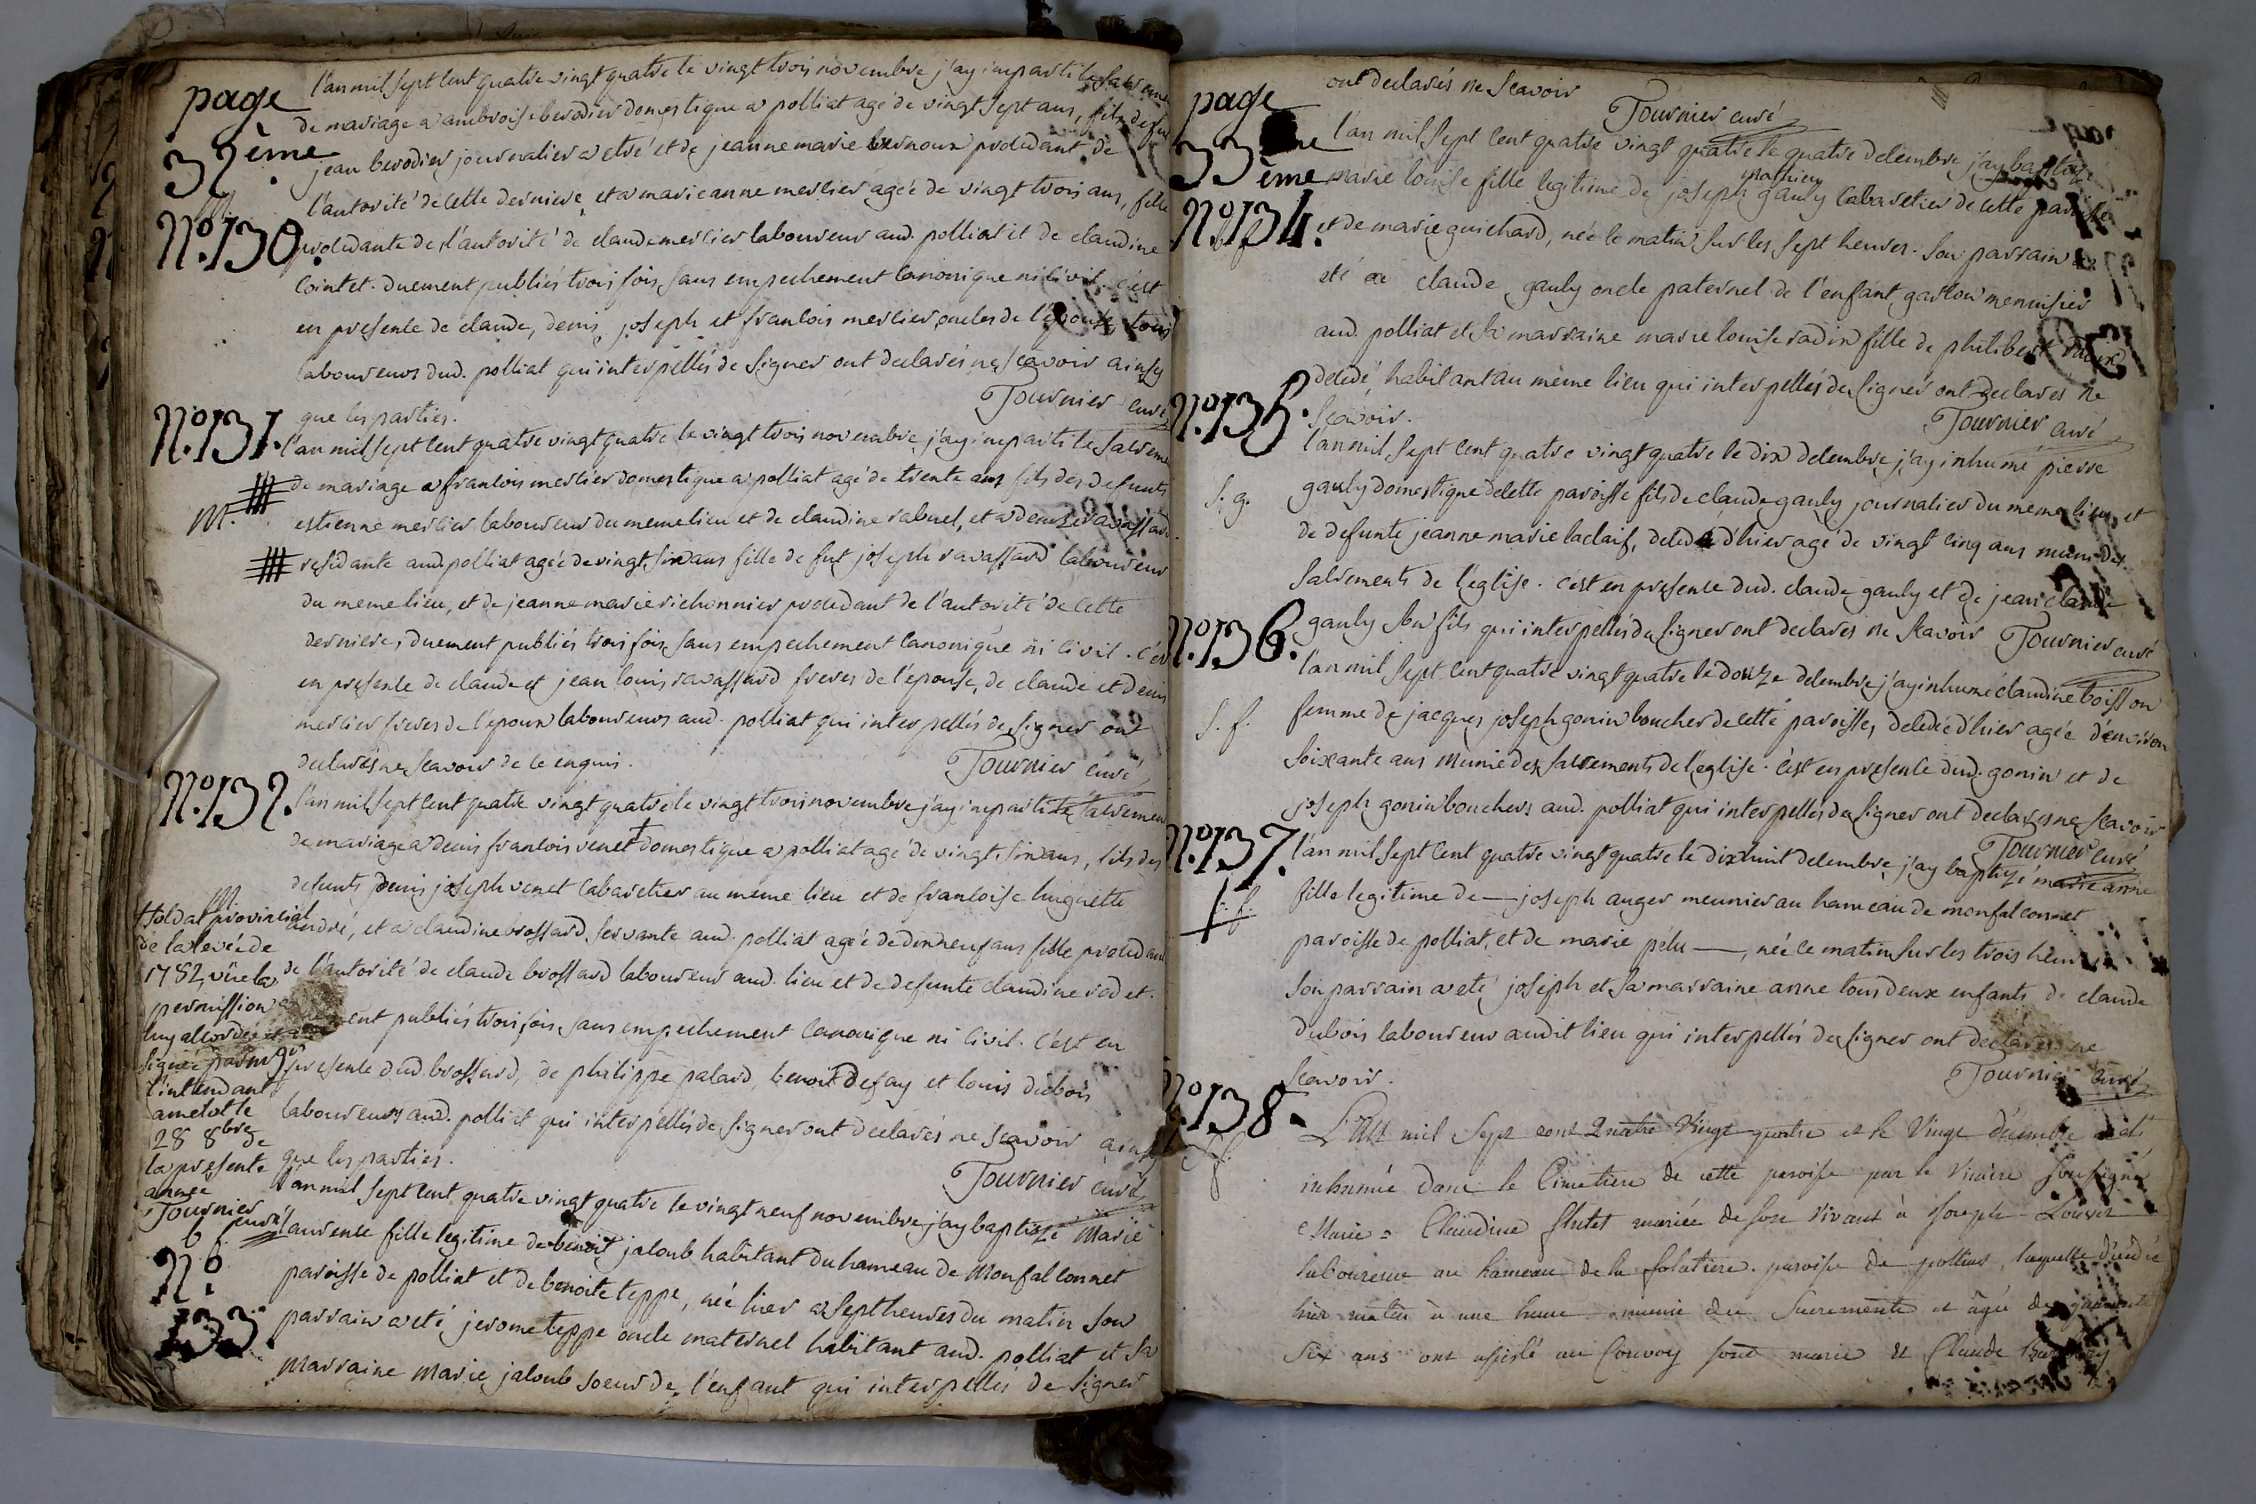 page
32ème
l'an mil sept cent quatre vingt quatre le vingt trois novembre j'ay imparti le sacreme
de mariage a ambroise berodier domestique a polliat agé de vingt sept ans, fils de fut
jean berodier journalier a etré et de jeanne marie bernoux procedant de
l'autorité de cette derniere, et a marie anne mercier agée de vingt trois ans, fille
No. 130.
procedante de l'autorité de claude mercier laboureur aud. polliat et de claudine
cointet. duement publiés trois fois, sans empechement canonique ni civil. c'est
en presence de claude, denis, joseph et francois mercier oncles de l'epouse, tous
laboureurs dud. polliat qui interpellés de signer ont declarés ne scavoir ainsy
que les parties.
Tournier curé
No. 131.
l'an mil sept cent quatre vingt quatre le vingt trois novembre, j'ay imparti le sacreme
de mariage a francois mercier domestique a polliat agé de trente ans fils des defunts
m.
estienne mercier laboureur du meme lieu et de claudine rabuel, et a denise ravassard
residante aud. polliat agée de vingt six ans fille de fut joseph ravassard laboureur
du meme lieu, et de jeanne marie richonnier procedant de l'autorité de cette
derniere, duement publiés trois fois sans empechement canonique ni civil. c'est
en presence de claude et jean louis ravassard freres de l'epouse, de claude et denis
mercier freres de l'epoux laboureurs aud. polliat qui interpellés de signer ont
declarés ne scavoir de ce enquis.
Tournier curé
No. 132.
l'an mil sept cent quatre vingt quatre le vingt trois novembre j'ay imparti le sacremen
de mariage a denis francois venet † domestique a polliat agé de vingt six ans, fils des
defunts denis joseph venet cabaretier au meme lieu et de francoise huguette
andré, et a claudine brossard servante aud. polliat agée de dix neuf ans fille procedant
de l'autorité de claude brossard laboureur aud. lieu et de defunte claudine rodet.
ent publiés trois fois, sans empechement canonique ni civil. c'est en
presence dud. brossard, de philippe palard, benoit defay et louis dubois
laboureurs aud. polliat qui interpellés de signer ont declarés ne scavoir ainsy
que les parties.
Tournier curé
† soldat provincial
de la levée de
1782, vûe la
permission
luy accordée et
signée par mgr
l'intendant
amelot le
28 8bre de
la presente
année
Tournier
curé
b f.
No.
133.
l'an mil sept cent quatre vingt quatre le vingt neuf novembre j'ay baptizé Marie
laurence fille legitime de benoit jaloub habitant du hameau de Monfalconnet
paroisse de polliat et de benoite teppe, née hier a sept heures du matin son
parrain a eté jerome teppe oncle maternel habitant aud. polliat et sa
marraine Marie jaloub soeur de l'enfant qui interpellés de signer
page
33ème
ont declarés ne scavoir
Tournier curé
No. 134.
b f
l'an mil sept cent quatre vingt quatre le quatre decembre j'ay baptizé
marie louise fille legitime de joseph mathieu gauly cabaretier de cette paroisse
et de marie guichard, née le matin sur les sept heures. son parrain a
eté claude gauly oncle paternel de l'enfant garcon menuisier
aud. polliat et sa marraine marie louise radix fille de philibert radix
decedé habitant au meme lieu qui interpellés de signer ont declarés ne
scavoir.
Tournier curé
No. 135.
s. g.
l'an mil sept cent quatre vingt quatre le dix decembre j'ay inhumé pierre
gauly domestique de cette paroisse fils de claude gauly journalier du meme lieu et
de defunte jeanne marie laclaif, decedé d'hier agé de vingt cinq ans muni des
sacrements de l'eglise. c'est en presence dud. claude gauly et de jean claude
gauly son fils qui interpellés de signer ont declarés ne scavoir
Tournier curé
No. 136.
s. f.
l'an mil sept cent quatre vingt quatre le douze decembre j'ay inhumé claudine boisson
femme de jacques joseph gonin boucher de cette paroisse, decedée d'hier agée d'environ
soixante ans munie des sacrements de l'eglise. c'est en presence dud. gonin et de
joseph gonin bouchers aud. polliat qui interpellés de signer ont declarés ne scavoir
Tournier curé
No. 137.
l'an mil sept cent quatre vingt quatre le dix huit decembre j'ay baptizé marie anne
fille legitime de — joseph auger meunier au hameau de monfalconnet
paroisse de polliat, et de marie pélu —, née ce matin sur les trois heur
son parrain a eté joseph et sa marraine anne tous deux enfants de claude
dubois laboureur audit lieu qui interpellés de signer ont declarés ne
scavoir.
Tournier curé
No. 138.
s. f.
L'an mil sept cent Quatre Vingt quatre et le Vingt décembre a eté
inhumée dans le Cimetiere de cette paroise par le Vicaire soussigné
Marie = Claudine mariée de son vivant à joseph
laboureur au hameau de la folatiere. paroise de polliat, laquelle décedée
hier matin à une heure munie des sacrements et âgée de
Six ans ont assisté au Convoy son marie et Claude